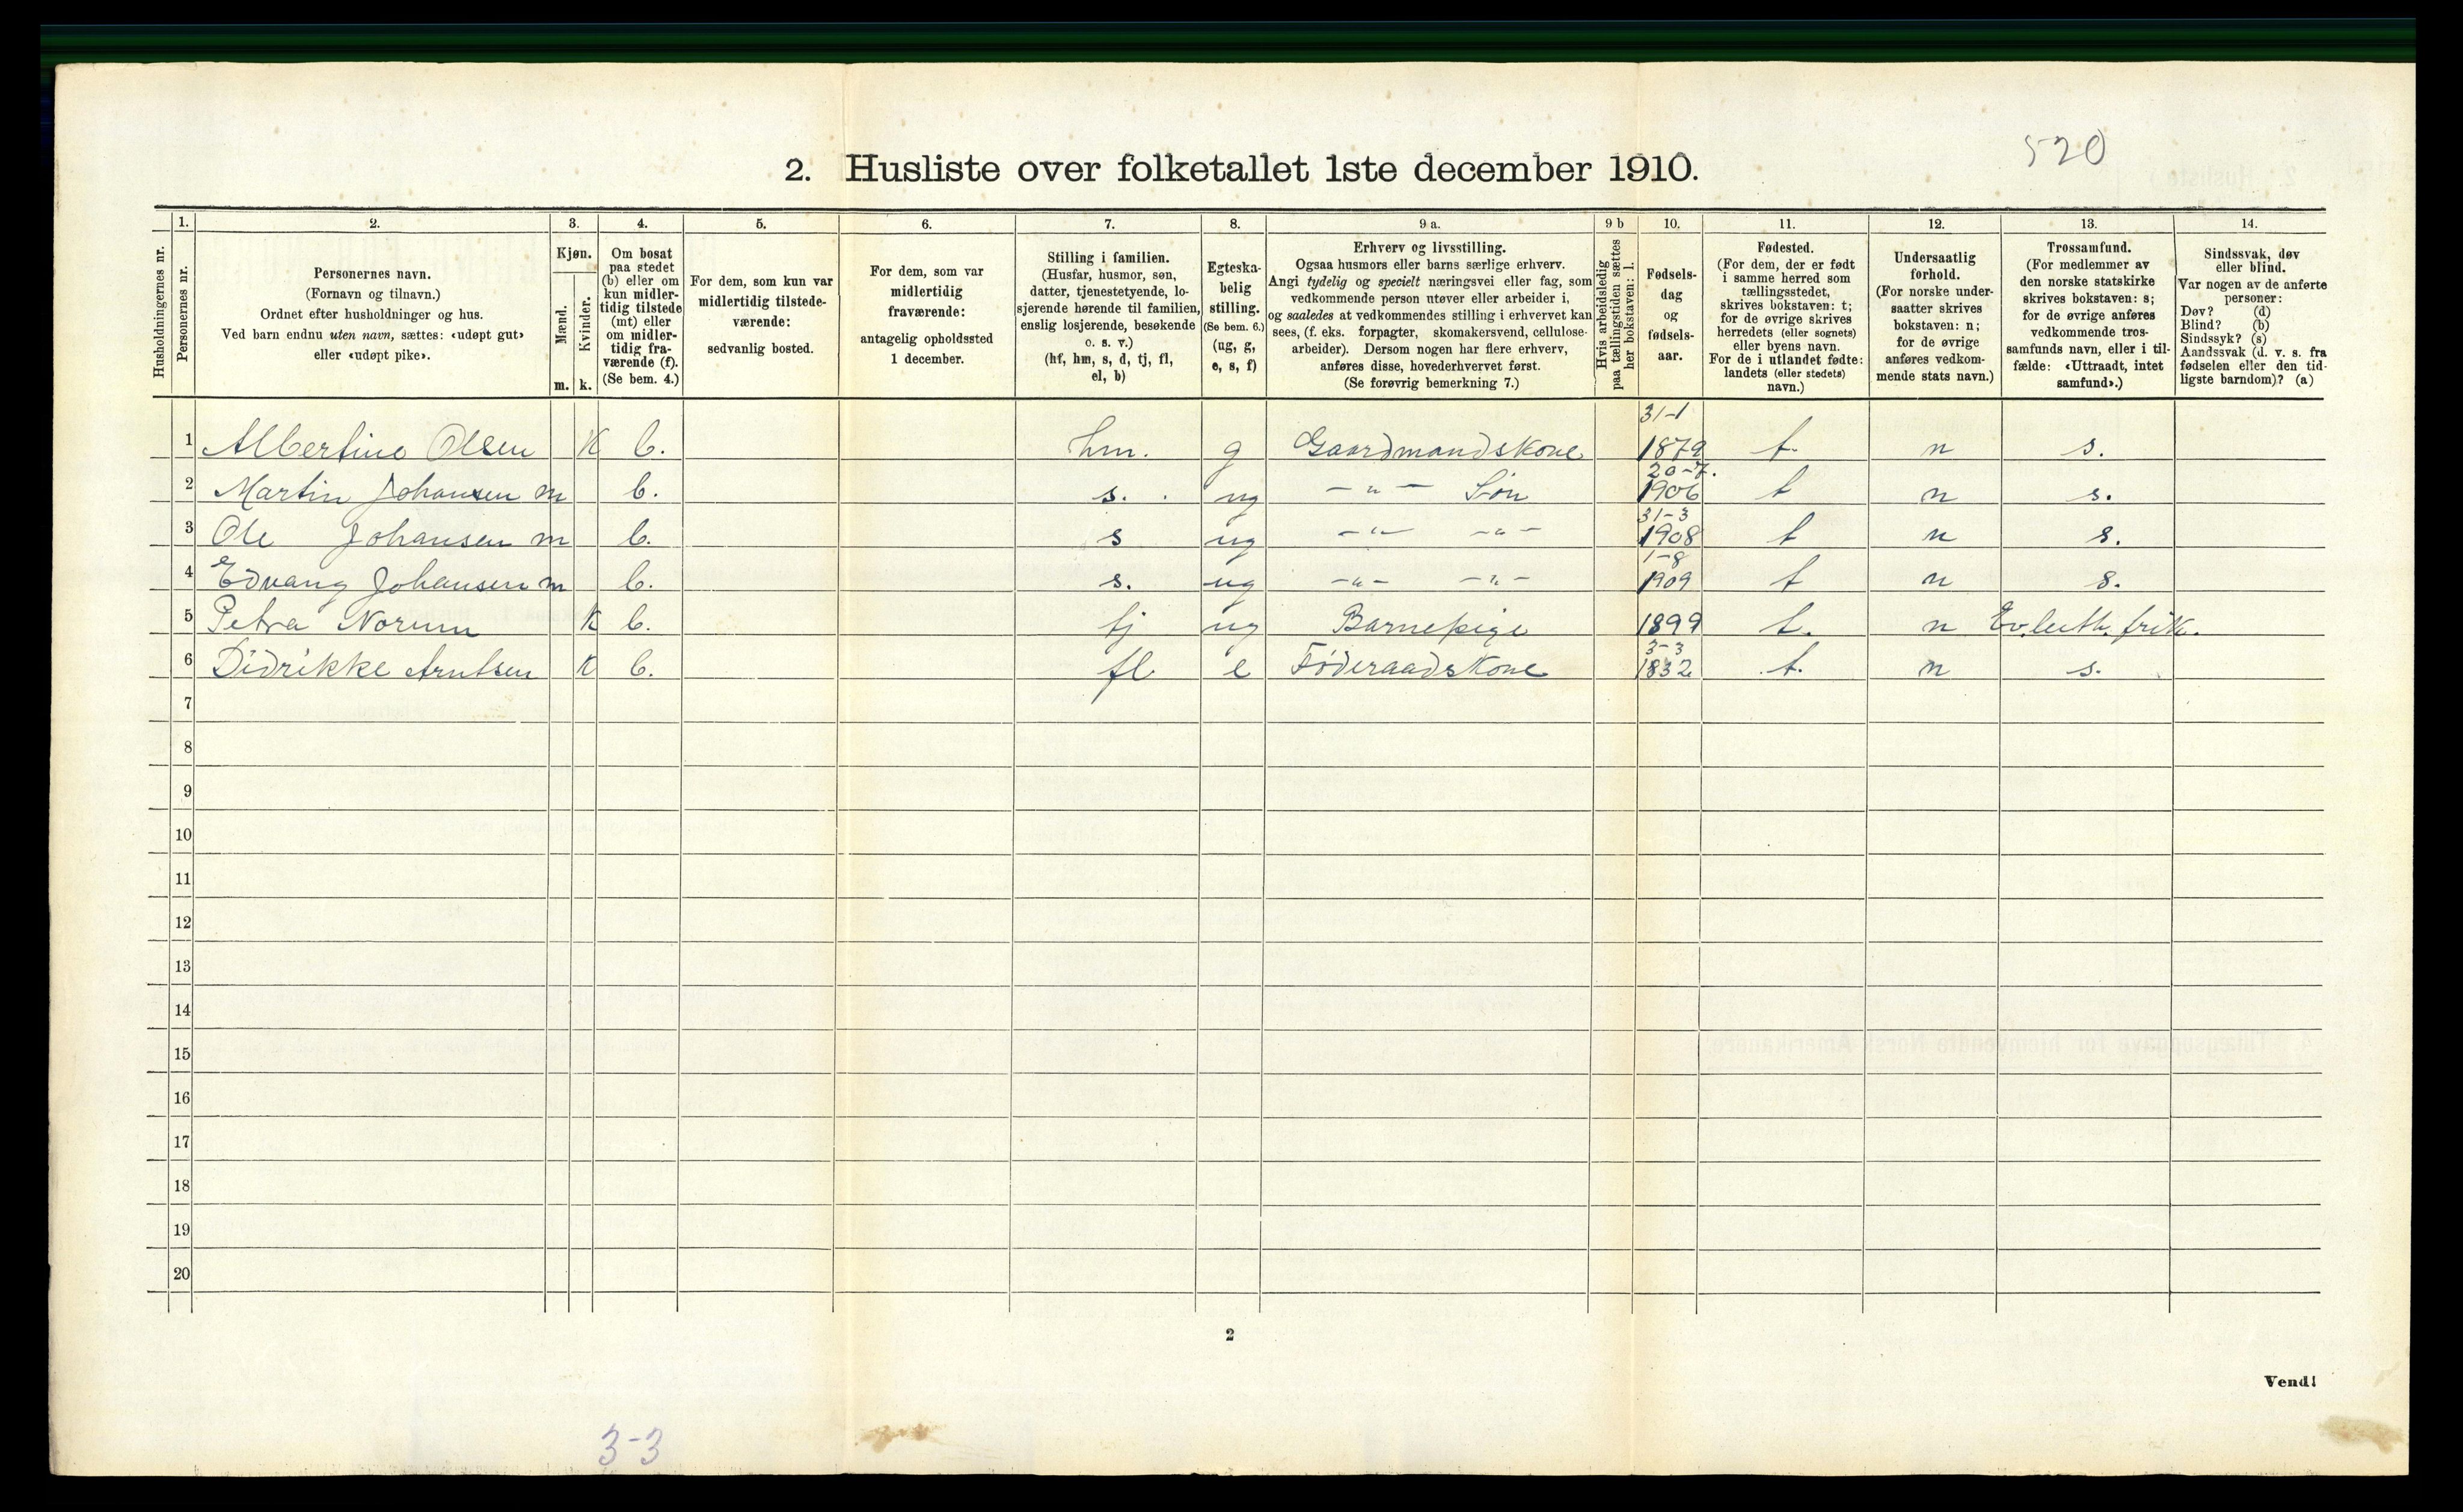 520
2. Husliste over folketallet 1ste december 1910.
Husholdningernes nr.
1.
Personernes nr.
2.
Personernes navn.
(Fornavn og tilnavn.)
Ordnet efter husholdninger og hus.
Ved barn endnu uten navn, sættes: «udøpt gut»
eller «udøpt pike».
3.
Kjøn.
Mænd.
Kvinder.
m. k.
4.
Om bosat
paa stedet
(b) eller om
kun midler-
tidig tilstede
(mt) eller
om midler-
tidig fra-
værende (f).
(Se bem. 4.)
5.
For dem, som kun var
midlertidig tilstede-
værende:
sedvanlig bosted.
6.
For dem, som var
midlertidig
fraværende:
antagelig opholdssted
1 december.
7.
Stilling i familien.
(Husfar, husmor, søn,
datter, tjenestetyende, lo-
sjerende hørende til familien,
enslig losjerende, besøkende
o. s. v.)
(hf, hm, s, d, tj, fl,
el, b)
8.
Egteska-
belig
stilling.
(Se bem. 6.)
(ug, g,
e, s, f)
9 a.
Erhverv og livsstilling.
Ogsaa husmors eller barns særlige erhverv.
Angi tydelig og specielt næringsvei eller fag, som
vedkommende person utøver eller arbeider i,
og saaledes at vedkommendes stilling i erhvervet kan
sees, (f. eks. forpagter, skomakersvend, cellulose-
arbeider). Dersom nogen har flere erhverv,
anføres disse, hovederhvervet først.
(Se forøvrig bemerkning 7.)
9 b
Hvis arbeidsledig
paa tællingstiden sættes
her bokstaven: l.
10.
Fødsels-
dag
og
fødsels-
aar.
11.
Fødested.
(For dem, der er født
i samme herred som
tællingsstedet,
skrives bokstaven: t;
for de øvrige skrives
herredets (eller sognets)
eller byens navn.
For de i utlandet fødte:
landets (eller stedets)
navn.)
12.
Undersaatlig
forhold.
(For norske under-
saatter skrives
bokstaven: n;
for de øvrige
anføres vedkom-
mende stats navn.)
13.
Trossamfund.
(For medlemmer av
den norske statskirke
skrives bokstaven: s;
for de øvrige anføres
vedkommende tros-
samfunds navn, eller i til-
fælde: «Uttraadt, intet
samfund».)
14.
Sindssvak, døv
eller blind.
Var nogen av de anførte
personer:
Døv? (d)
Blind? (b)
Sindssyk? (s)
Aandssvak (d. v. s. fra
fødselen eller den tid-
ligste barndom)? (a)
31-1
1 Albertine Olsen K b. hm. g Gaardmandskone 1879 t. n s.
20-7.
2 Martin Johansen m b. s. ug -"- Søn 1906 t n s.
31-3
3 Ole Johansen m b. s ug -"- -"- 1908 t n s.
1-8
4 Edvang Johansen m b. s. ug -"- -"- 1909 t n s.
5 Petra Norum K b. tj ug Barnepige 1899 t. n Ev. luth. frik.
3-3
6 Didrikke Arntsen K b. fl e Føderaadskone 1832 t. n s.
7
8
9
10
11
12
13
14
15
16
17
18
19
20
2
Vend!
3-3